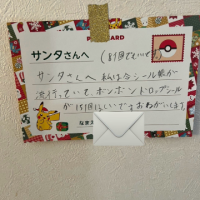 POSTCARD
サンタさんへ
サンタさんへ 私は今シール帳が
流行っていてボンボンドロップシール
が151個ほしいですおねがいします。
なまえ